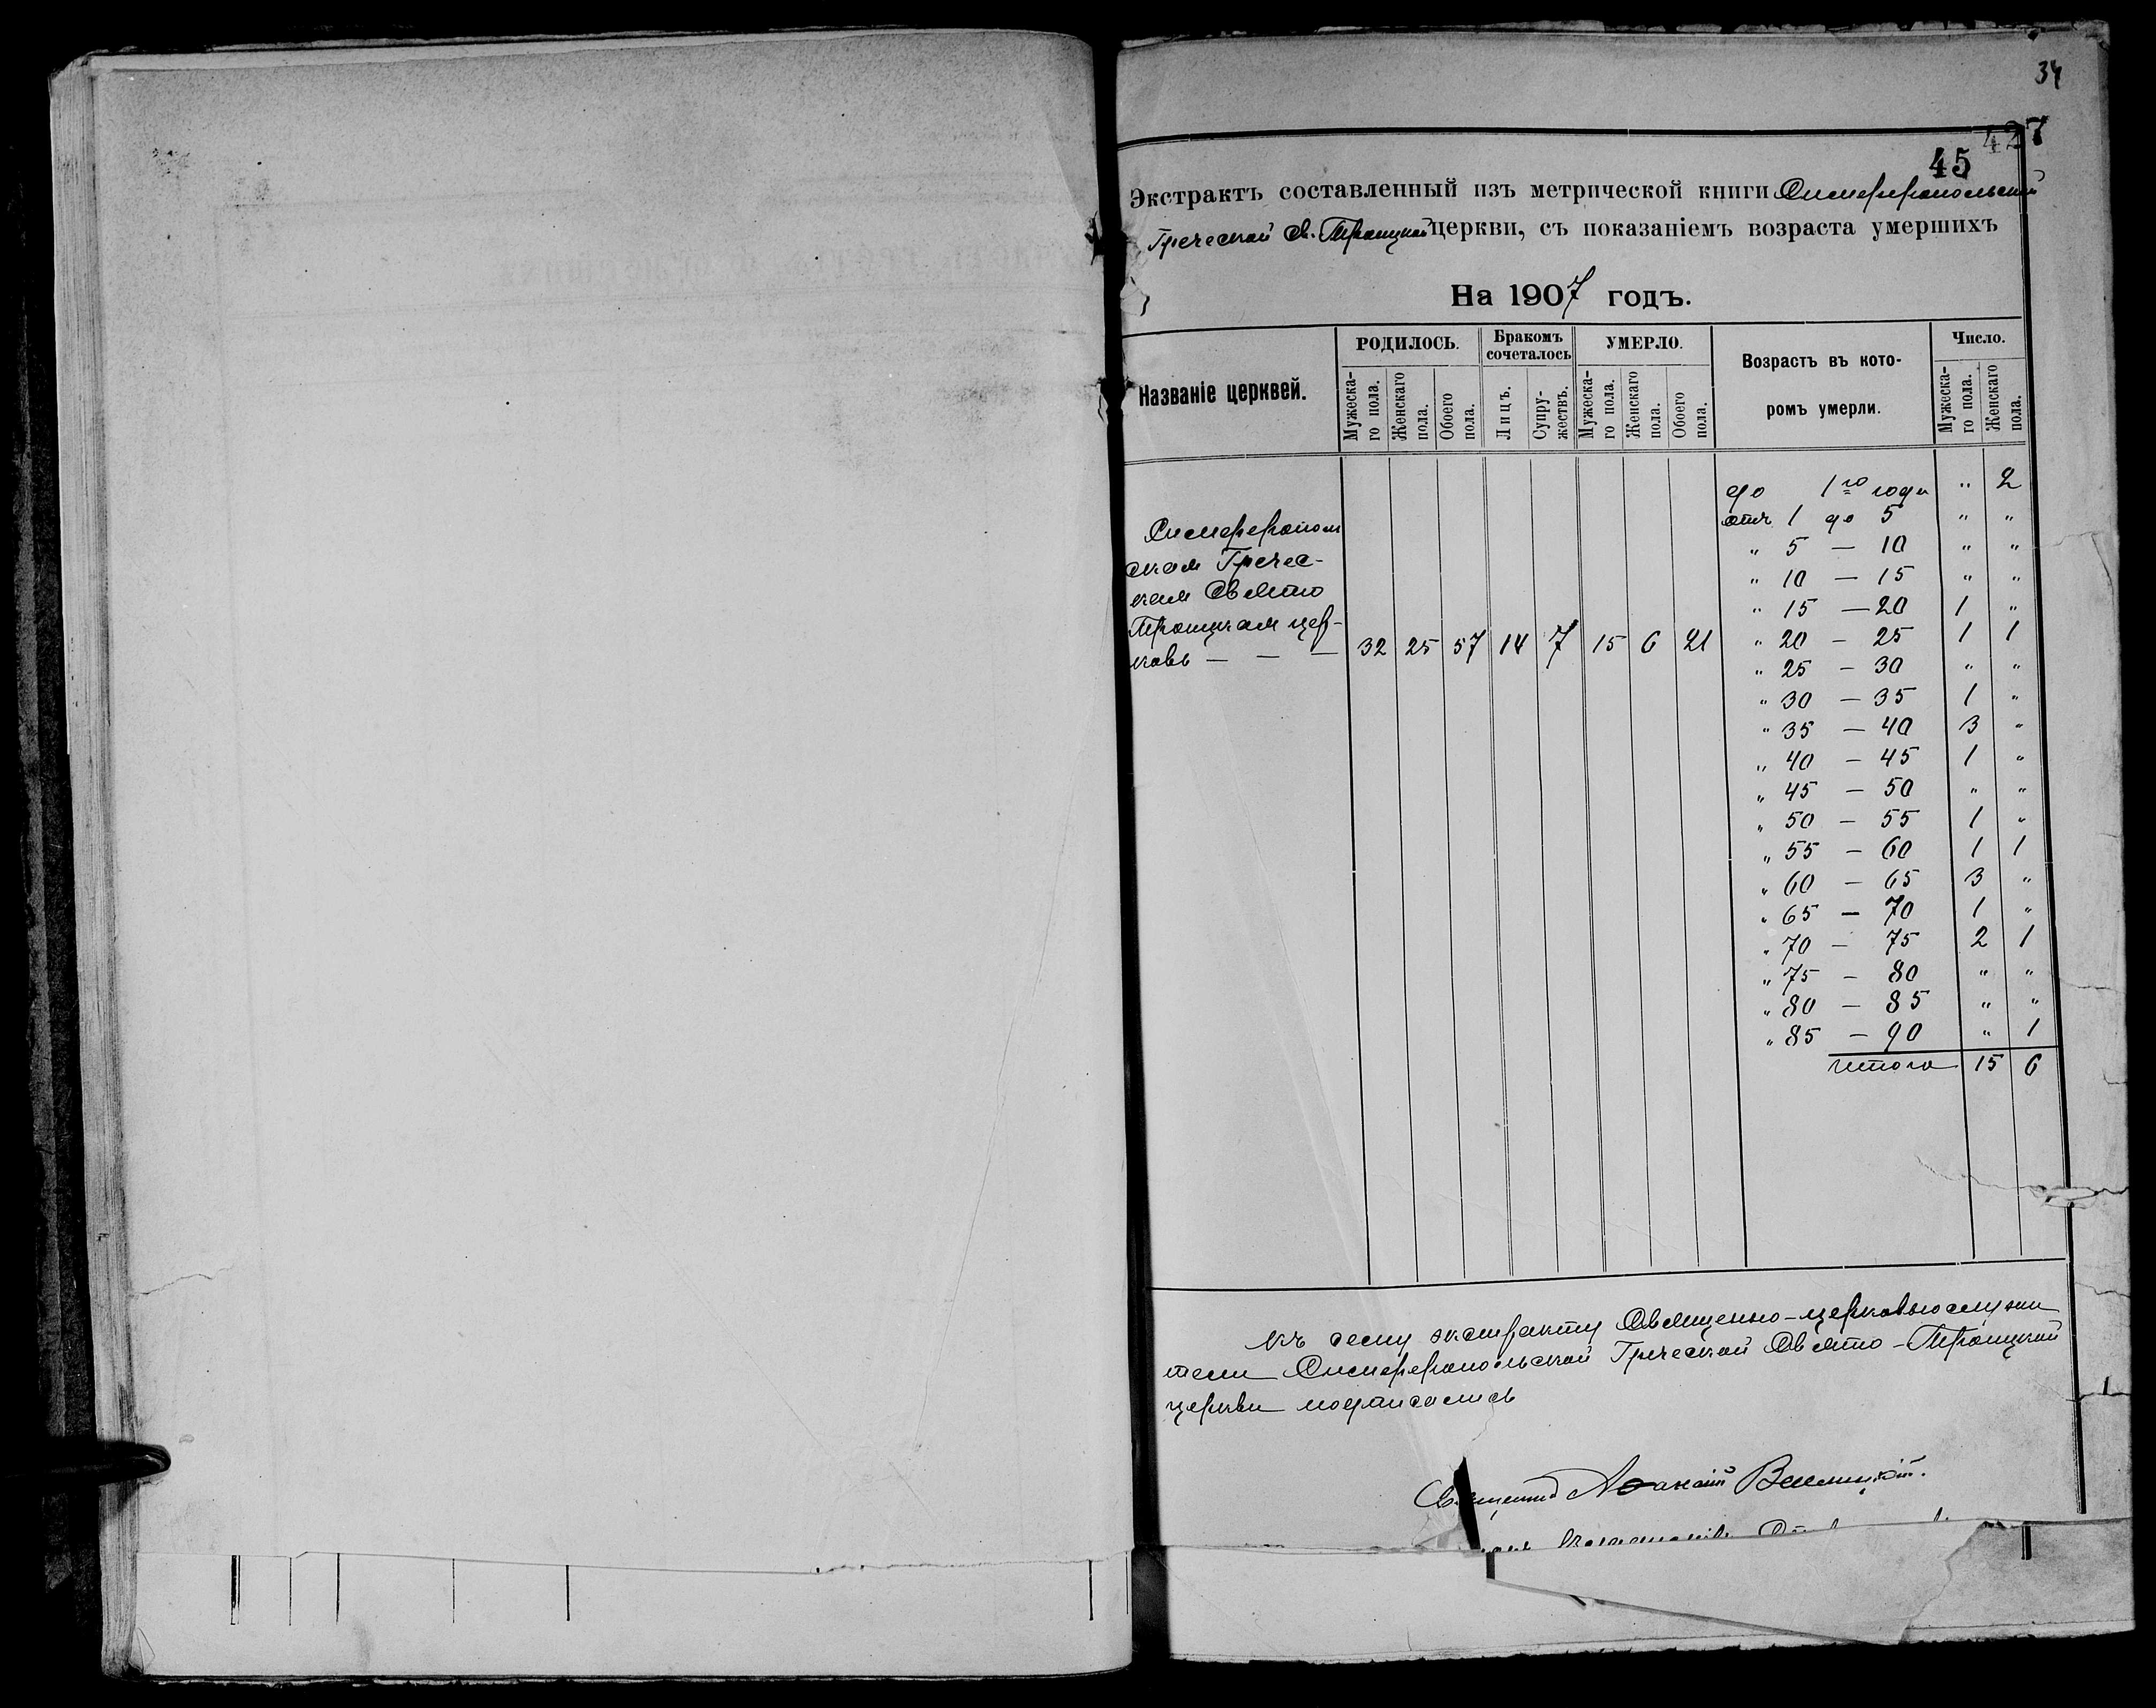 34
427
45
Экстрактъ составленный изъ метрической книги Симферопольской
Греческой Св. Троицкой церкви, съ показаніемъ возраста умершихъ
На 1907 годъ.
Названіе церквей.
РОДИЛОСЬ.
Мужеска-
го пола.
Женскаго
пола.
Обоего
пола.
Бракомъ
сочеталось
Лицъ.
Супру-
жествъ.
УМЕРЛО.
Мужеска-
го пола.
Женскаго
пола.
Обоего
пола.
Возрастъ въ кото-
ромъ умерли.
Число.
Мужеска-
го пола.
Женскаго
пола.
Симферополь
ская Гречес-
кая Свято
Троицкая цер-
ковь — — — 32 25 57 14 7 15 6 21
до 1го года " 2
отъ 1 до 5 " "
" 5 — 10 " "
" 10 — 15 " "
" 15 — 20 1 "
" 20 — 25 1 1
" 25 — 30 " "
" 30 — 35 1 "
" 35 — 40 3 "
" 40 — 45 1 "
" 45 — 50 " "
" 50 — 55 1 "
" 55 — 60 1 1
" 60 — 65 3 "
" 65 — 70 1 "
" 70 — 75 2 1
" 75 — 80 " "
" 80 — 85 " "
" 85 — 90 " 1
Итого 15 6
Къ сему экстракту Священно-церковнослужи
тели Симферопольской Греческой Свято-Троицкой
церкви подписались
Священникъ